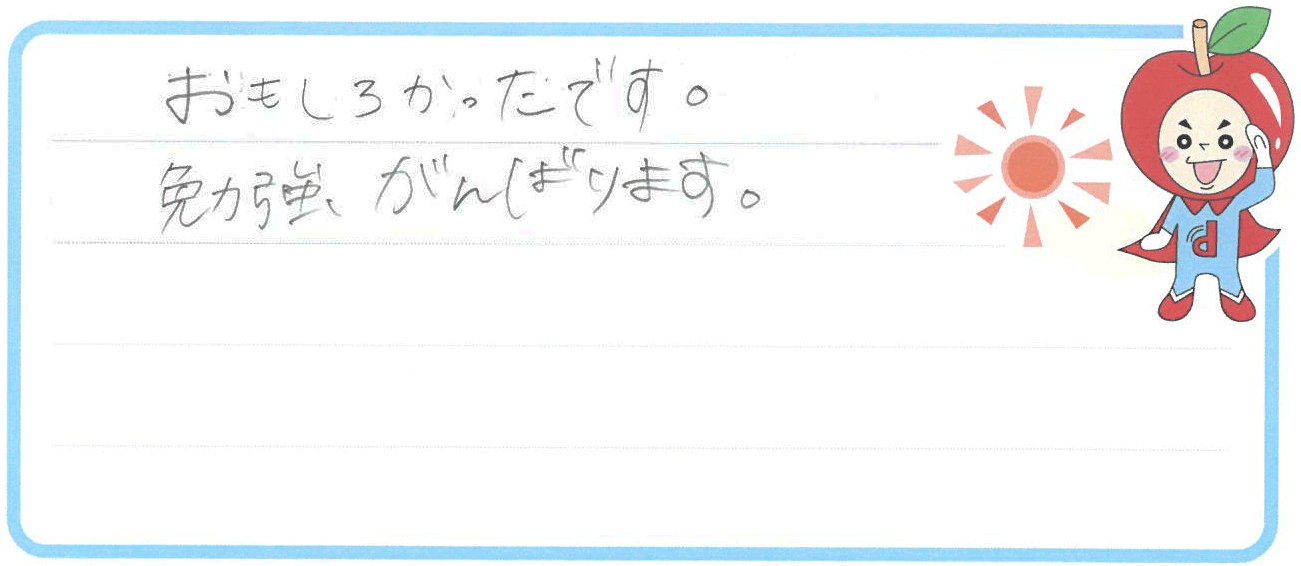 おもしろかったです。
勉強がんばります。